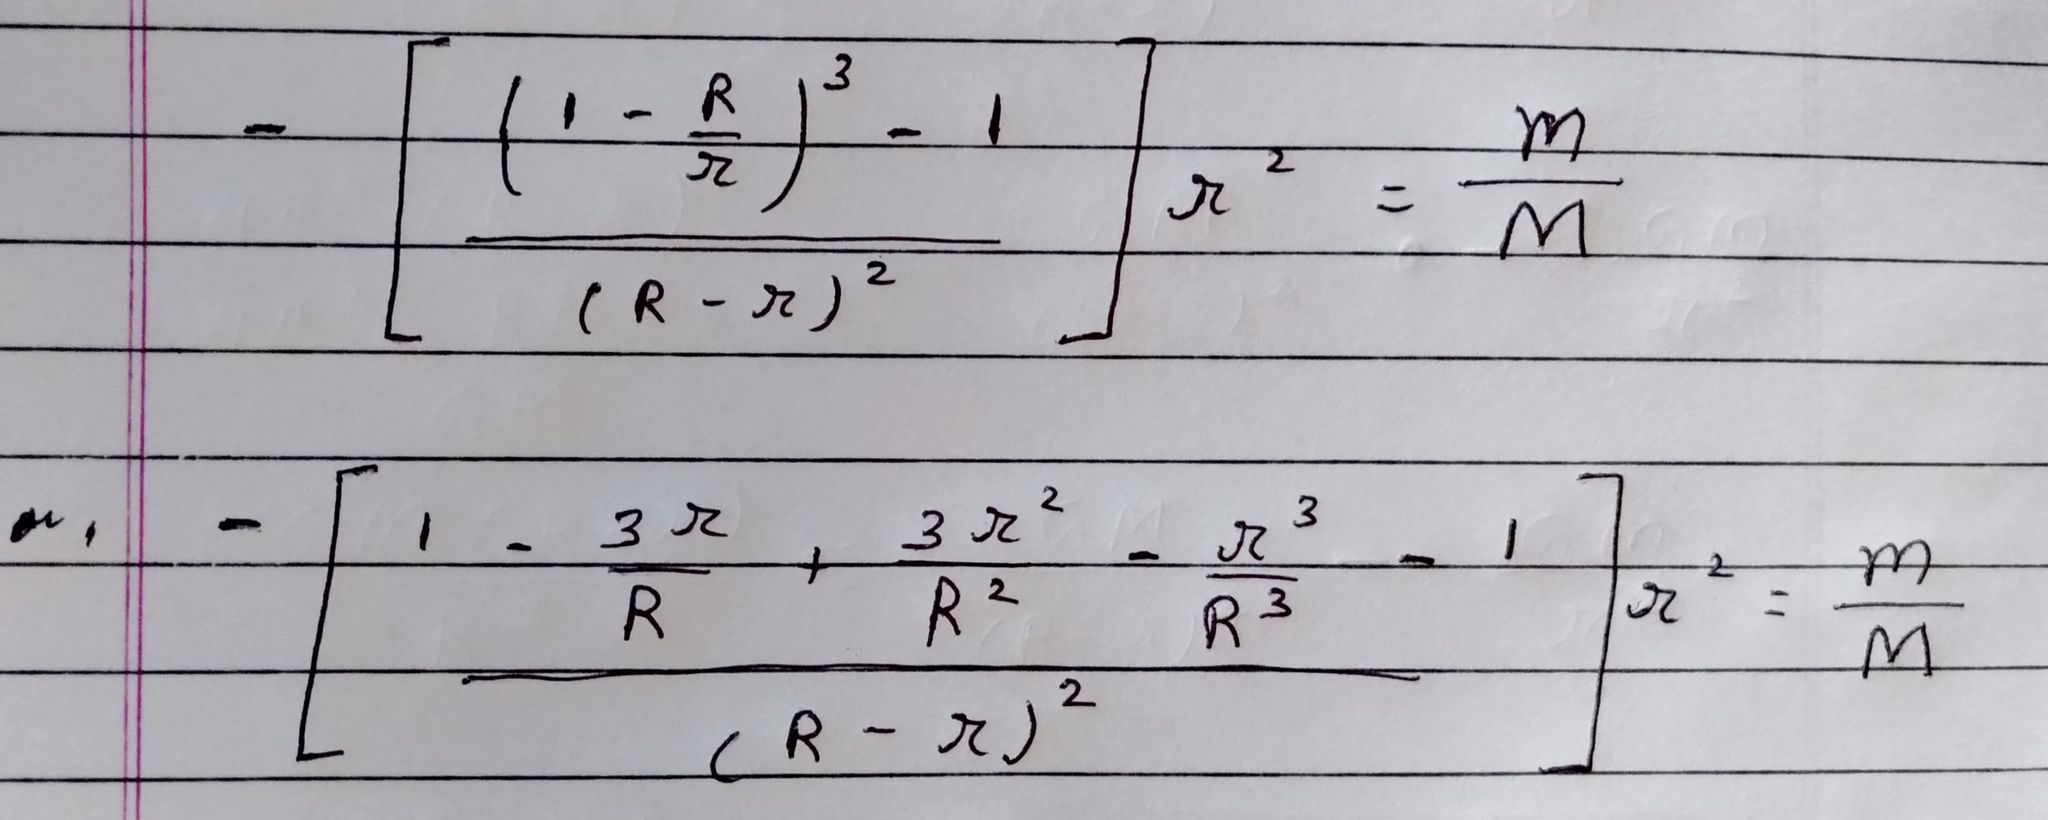 - [ ( ( 1 - R/r )^3 - 1 ) / ( R - r )^2 ] r^2 = m/M
or, - [ ( 1 - 3r/R + 3r^2/R^2 - r^3/R^3 - 1 ) / ( R - r )^2 ] r^2 = m/M